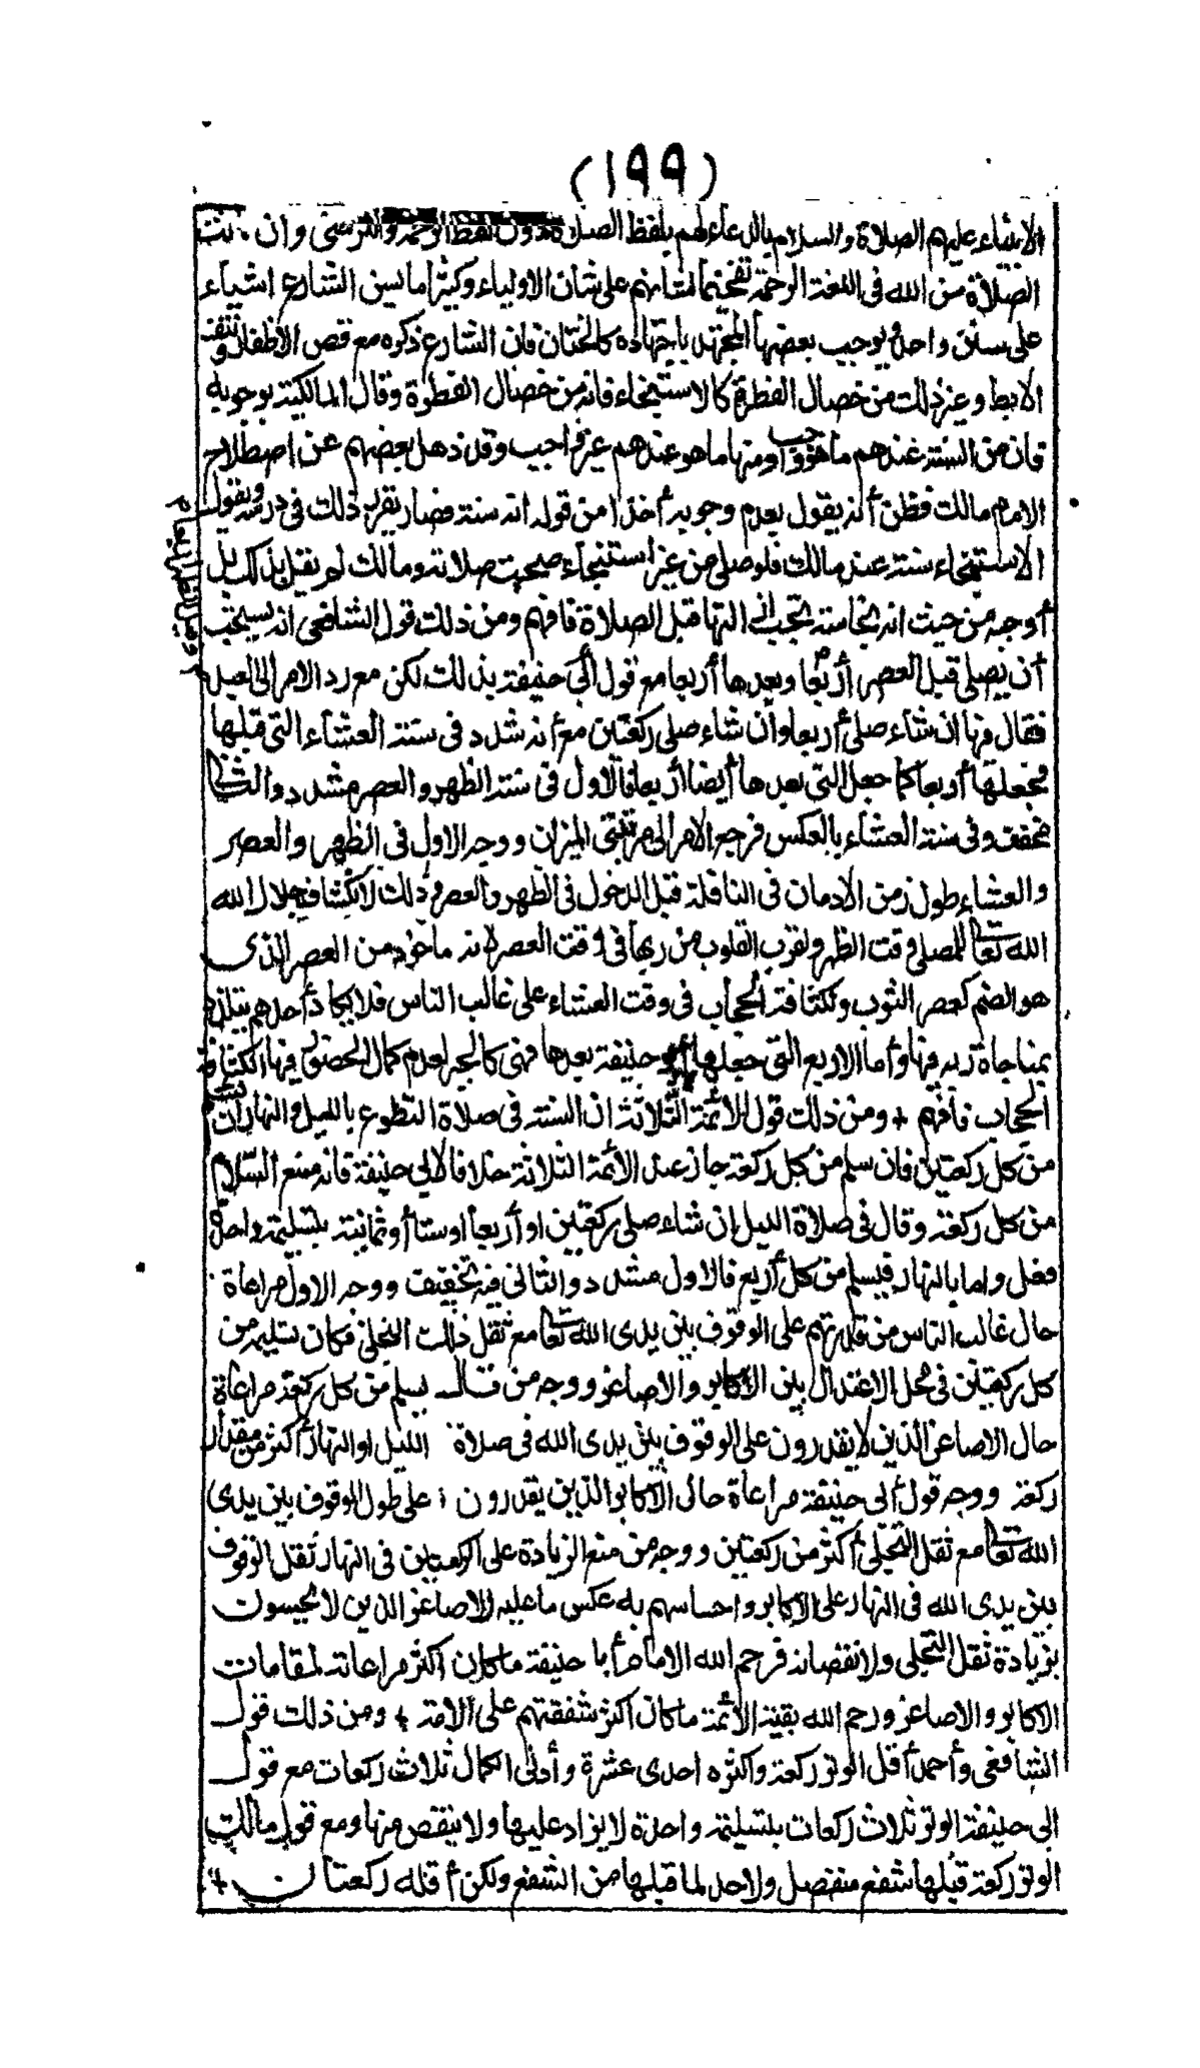 (١٩٩)
الانبياء عليهم الصلاة والسلام بالدعاء لهم بلفظ الصلاة دون لفظ الرحمة والترضى وان كانت
الصلاة من الله فى اللغة الرحمة تفخيما لشانهم على شان الاولياء وكثيرا ما يسن الشارع اشياء
على سنن واحد ويوجب بعضها المجتهد باجتهاده كالختان فان الشارع ذكره مع قص الاظفار ونتف
الابط وغير ذلك من خصال الفطرة كالاستنجاء فانه من خصال الفطرة وقال المالكية بوجوبه
فان من السنة عندهم ما هو واجب ومنها ما هو عندهم غير واجب وقد ذهل بعضهم عن اصطلاح
الامام مالك فظن أنه يقول بعدم وجوبه أخذا من قوله انه سنة فصار يقرر ذلك فى درسه ويقول
الاستنجاء سنة عند مالك فلو صلى من غير استنجاء صحت صلاته ومالك لم يقل بذلك بل
أوجبه من حيث انه نجاسة تجب ازالتها قبل الصلاة فافهم ومن ذلك قول الشافعى انه يستحب
أن يصلى قبل العصر أربعا وبعدها أربعا مع قول أبى حنيفة بذلك لكن مع رد الامر الى العبد
فقال فيها ان شاء صلى أربعا وان شاء صلى ركعتين مع أنه شدد فى سنة العشاء التى قبلها
فجعلها أربعا كما جعل التى بعدها أيضا أربعا فالاول فى سنة الظهر والعصر مشدد والثانى
مخفف وفى سنة العشاء بالعكس فرجع الامر الى مرتبتى الميزان ووجه الاول فى الظهر والعصر
والعشاء طول زمن الادمان فى النافلة قبل الدخول فى الظهر والعصر وذلك لانكشاف جلال الله
الله تعالى للمصلى وقت الظهر ولقرب القلوب من ربها فى وقت العصر لانه مأخوذ من العصر الذى
هو الضم كعصر الثوب ولكثافة الحجاب فى وقت العشاء على غالب الناس فلا يكاد أحدهم يتلذذ
بمناجاة ربه فيها وأما الاربع التى جعلها أبو حنيفة بعدها فهى كالجبر لعدم كمال الحضور فيها لكثافة
الحجاب فافهم + ومن ذلك قول الأئمة الثلاثة ان السنة فى صلاة التطوع بالليل والنهار ان يسلم
من كل ركعتين فان سلم من كل ركعة جاز عند الأئمة الثلاثة خلافا لابى حنيفة فانه منع السلام
من كل ركعة وقال فى صلاة الليل ان شاء صلى ركعتين او أربعا او ستا أو ثمانية بتسليمة واحدة
فعل واما بالنهار فيسلم من كل أربع فالاول مشدد والثانى فيه تخفيف ووجه الاول مراعاة
حال غالب الناس من قدرتهم على الوقوف بين يدى الله تعالى مع ثقل ذلك التجلى فكان تسليمه من
كل ركعتين فى محل الاعتدال بين الاكابر والاصاغر ووجه من قال يسلم من كل ركعة مراعاة
حال الاصاغر الذين لا يقدرون على الوقوف بين يدى الله فى صلاة الليل او النهار أكثر من مقدار
ركعة ووجه قول أبى حنيفة مراعاة حال الأكابر الذين يقدرون على طول الوقوف بين يدى
الله تعالى مع ثقل التجلى أكثر من ركعتين ووجه من منع الزيادة على الركعتين فى النهار ثقل الوقوف
بين يدى الله فى النهار على الاكابر واحساسهم به عكس ما عليه الاصاغر الذين لا يحسون
بزيادة ثقل التجلى ولا نقصانه فرحم الله الامام أبا حنيفة ما كان اكثر مراعاته لمقامات
الاكابر والاصاغر ورحم الله بقية الأئمة ما كان اكثر شفقتهم على الامة + ومن ذلك قول
الشافعى وأحمد أقل الوتر ركعة واكثره احدى عشرة وأدنى الكمال ثلاث ركعات مع قول
ابى حنيفة الوتر ثلاث ركعات بتسليمة واحدة لا يزاد عليها ولا ينقص منها ومع قول مالك
الوتر ركعة قبلها شفع منفصل ولا حد لما قبلها من الشفع ولكن أقله ركعتان +